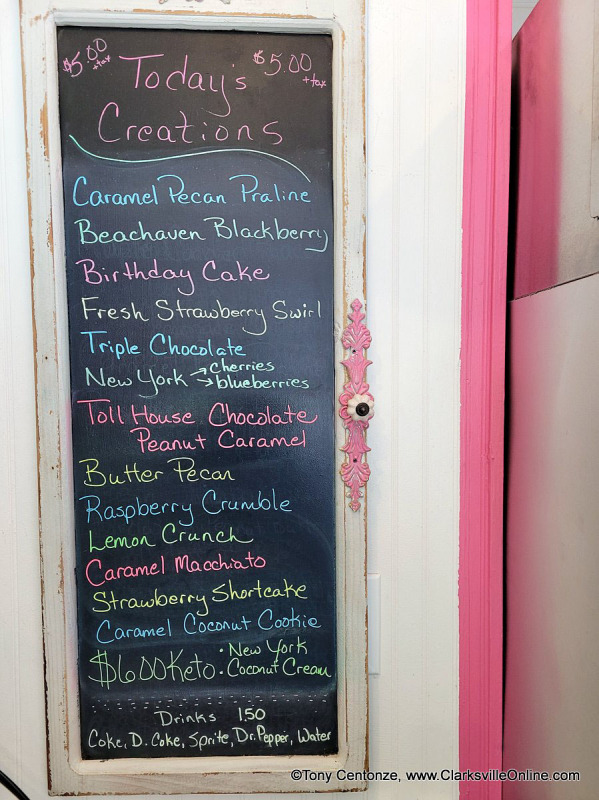 $5.00 +tax
Today's
$5.00 +tax
Creations
Caramel Pecan Praline
Beachaven Blackberry
Birthday Cake
Fresh Strawberry Swirl
Triple Chocolate
New York → cherries
→ blueberries
Toll House Chocolate
Peanut Caramel
Butter Pecan
Raspberry Crumble
Lemon Crunch
Caramel Macchiato
Strawberry Shortcake
Caramel Coconut Cookie
$6.00 Keto: New York
Coconut Cream
Drinks 1.50
Coke, D. Coke, Sprite, Dr. Pepper, Water
©Tony Centonze, www.ClarksvilleOnline.com